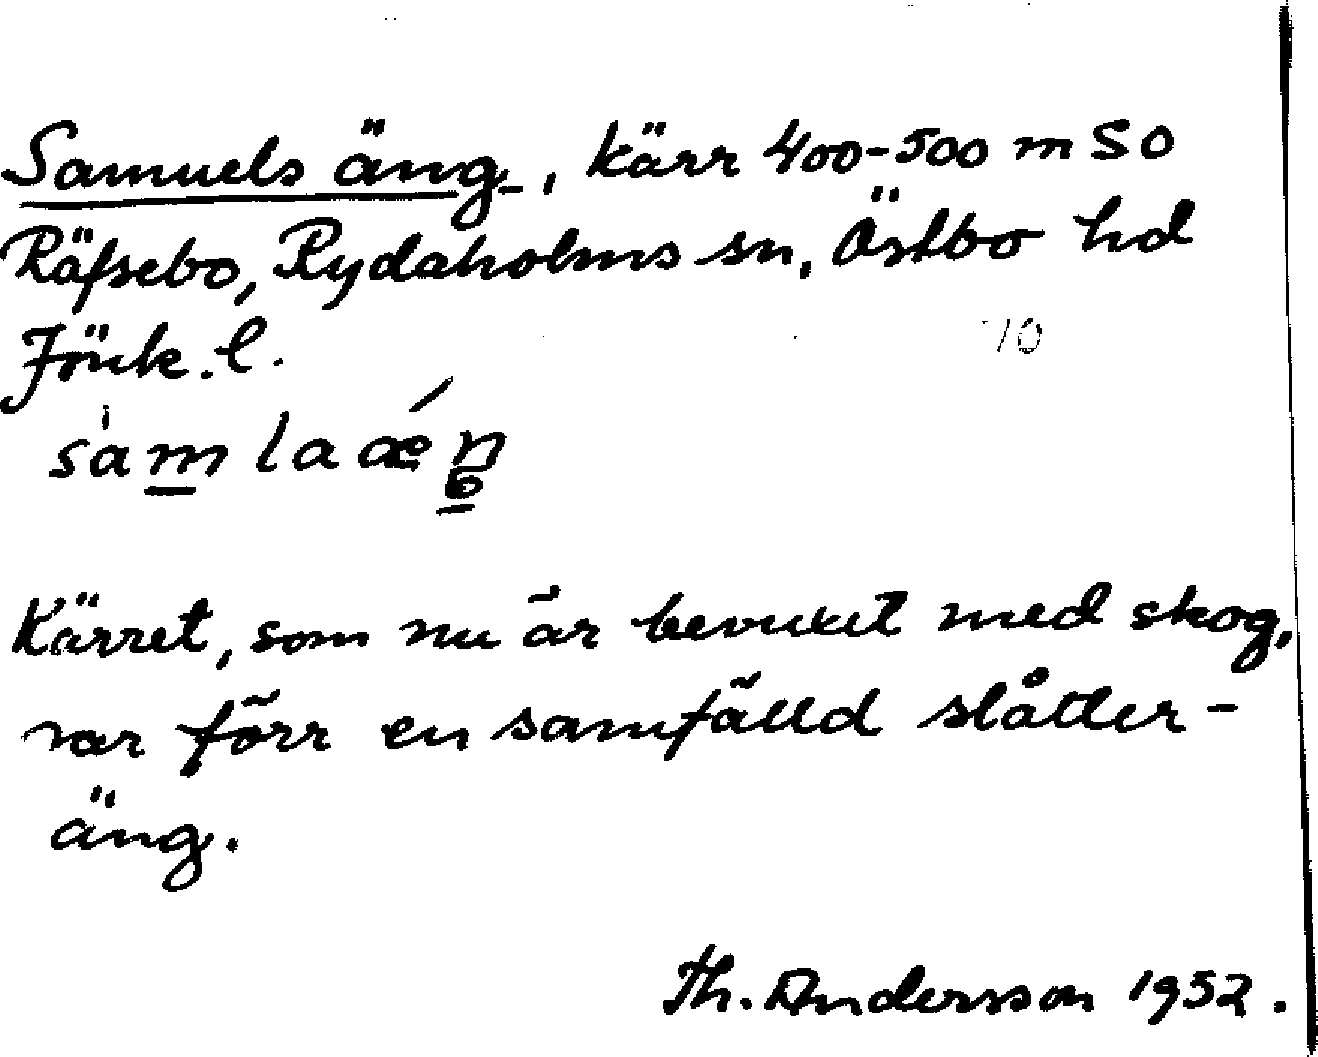 Samuels äng, kärr 400-500 m SO
Räfsebo, Rydaholms sn, Östbo hd
Jönk. l.
70
Kärret, som nu är bevuxet med skog,
var förr en samfälld slåtter-
äng.
Th. Andersson 1952.